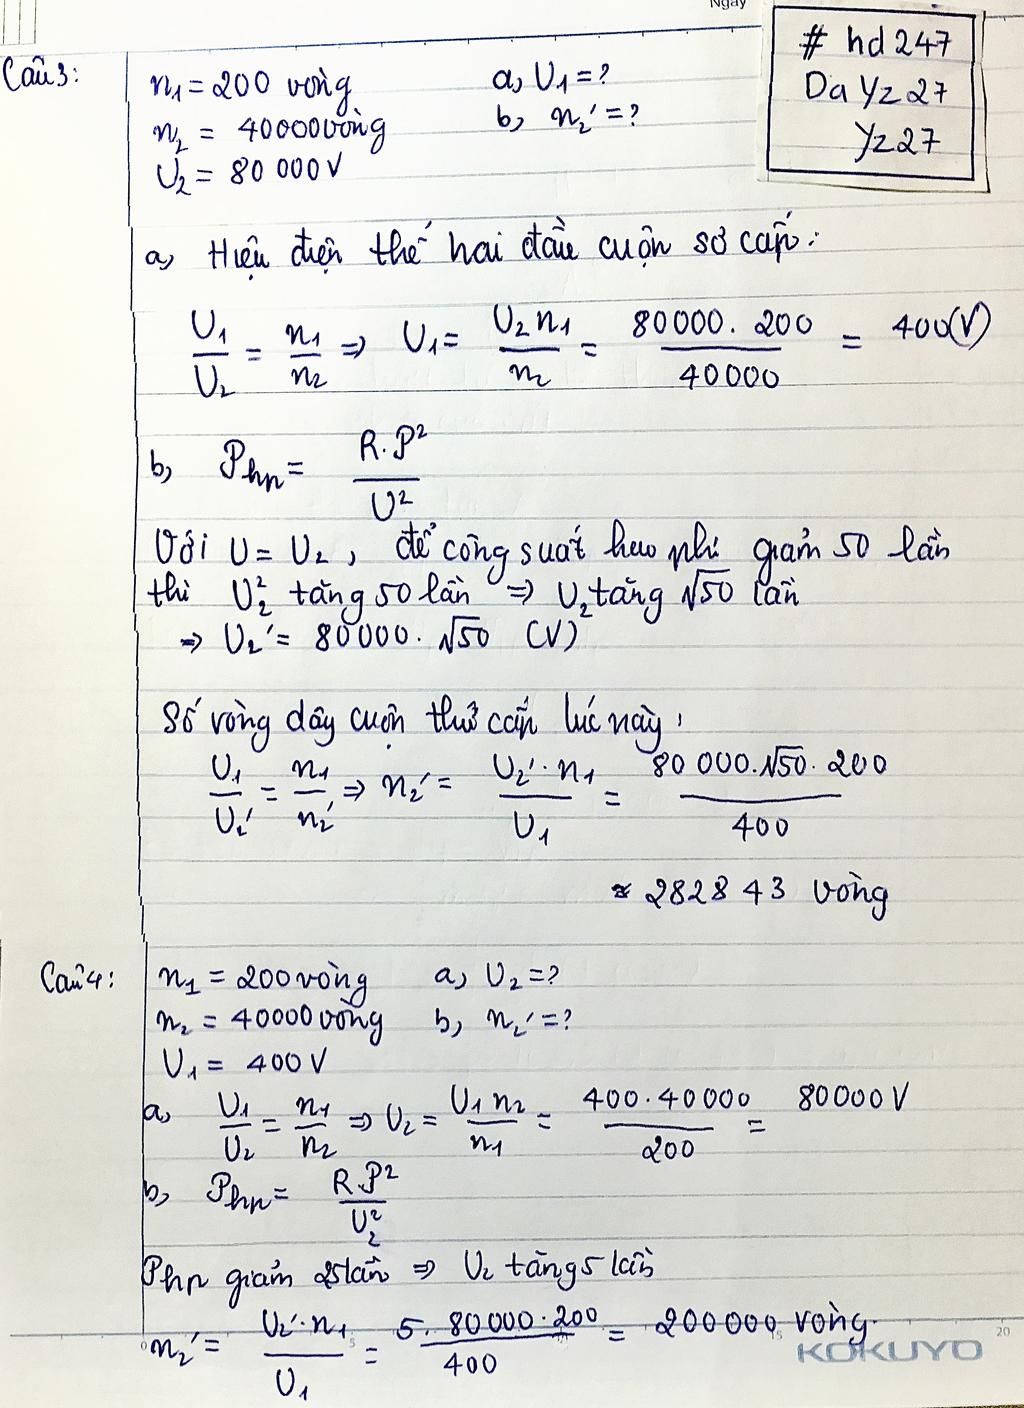 Ngày
# hd247
Da Yz27
Yz27
Câu3:
n₁ = 200 vòng a, U₁ = ?
n₂ = 40000vòng b, n₂' = ?
U₂ = 80 000V
a, Hiệu điện thế hai đầu cuộn sơ cấp:
U₁/U₂ = n₁/n₂ => U₁ = U₂ n₁/n₂ = 80000. 200/40000 = 400(V)
b, Php = R.P²/U²
Với U = U₂, để công suất hao phí giảm 50 lần
thì U₂² tăng 50 lần => U₂ tăng √50 lần
=> U₂' = 80000. √50 (V)
Số vòng dây cuộn thứ cấp lúc này:
U₁/U₂' = n₁/n₂' => n₂' = U₂'. n₁/U₁ = 80 000.√50. 200/400
≈ 282843 vòng
Câu4:
n₁ = 200 vòng a, U₂ = ?
n₂ = 40000 vòng b, n₂' = ?
U₁ = 400V
a, U₁/U₂ = n₁/n₂ => U₂ = U₁ n₂/n₁ = 400.40000/200 = 80000V
b, Php = R.P²/U₂²
Php giảm 25lần => U₂ tăng 5 lần
n₂' = U₂'. n₁/U₁ = 5. 80000.200/400 = 200000 vòng.
0 5 15 20
KOKUYO